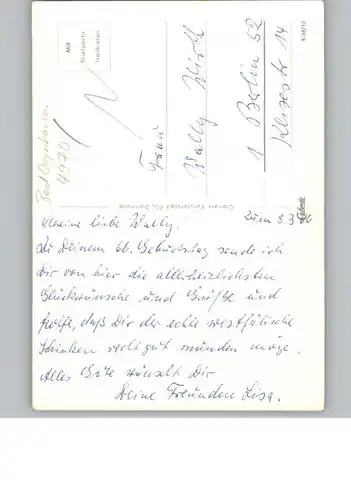 Mit
Briefporto
freimachen
5148/10
Bad Oeynhausen
4970
Frau
Wally Hirth
1 Berlin 52
Klixstr 14
Cramers Kunstanstalt KG, Dortmund
Zum 3.3.86
Meine liebe Wally!
Zu Deinem 66. Geburtstag sende ich
Dir von hier die allerherzlichsten
Glückwünsche und Grüße und
hoffe, daß Dir der echte westfälische
Schinken recht gut munden möge.
Alles Gute wünscht Dir
Deine Freundin Lisa.